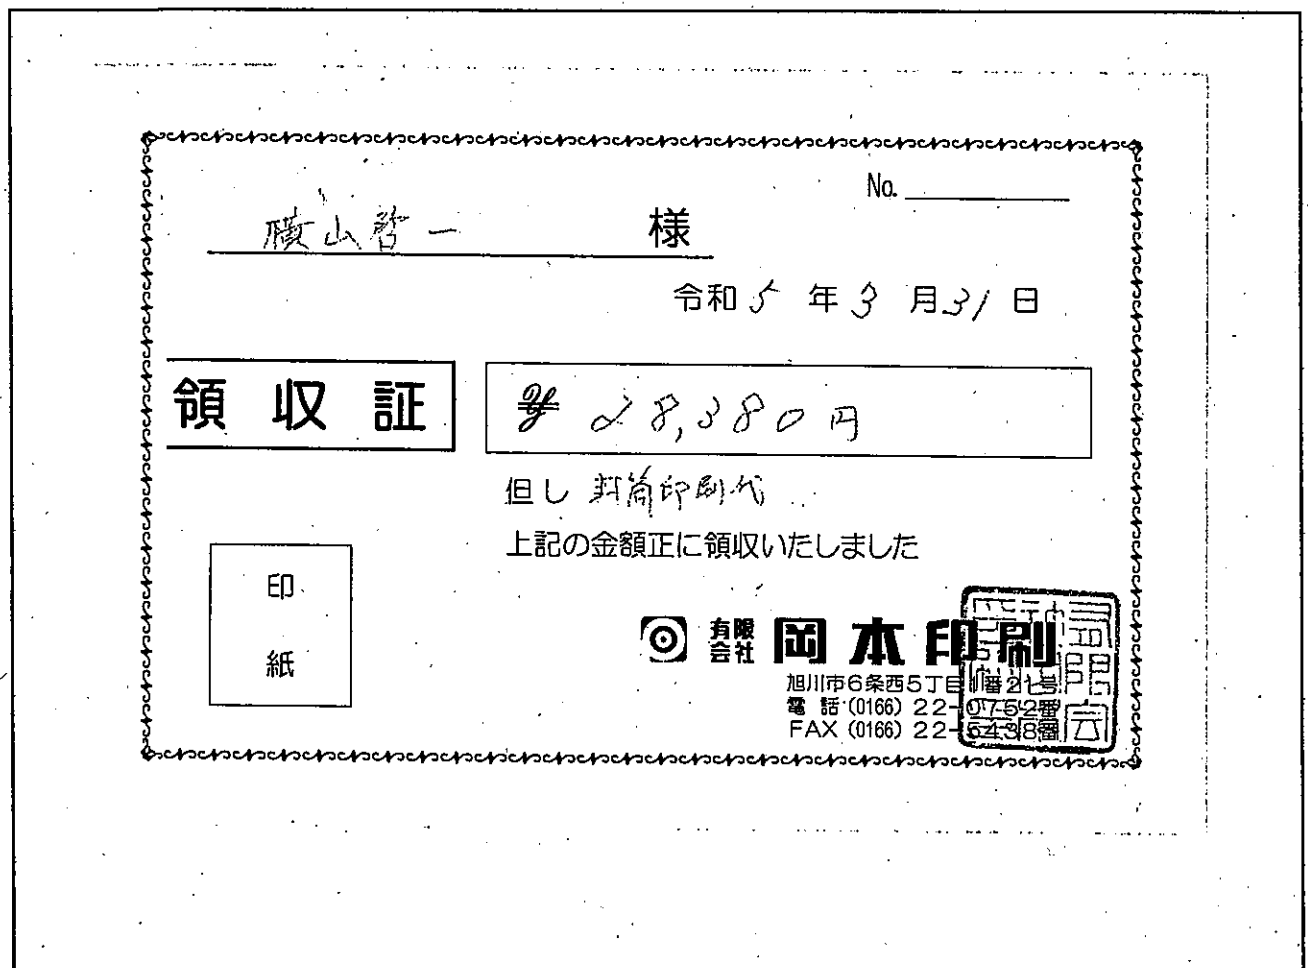 No.
横山啓一 様
令和5年3月31日
領収証
¥ 28,380円
但し 封筒印刷代
上記の金額正に領収いたしました
印
紙
有限会社 岡本印刷
旭川市6条西5丁目1番21号
電話(0166)22-0752番
FAX(0166)22-5438番